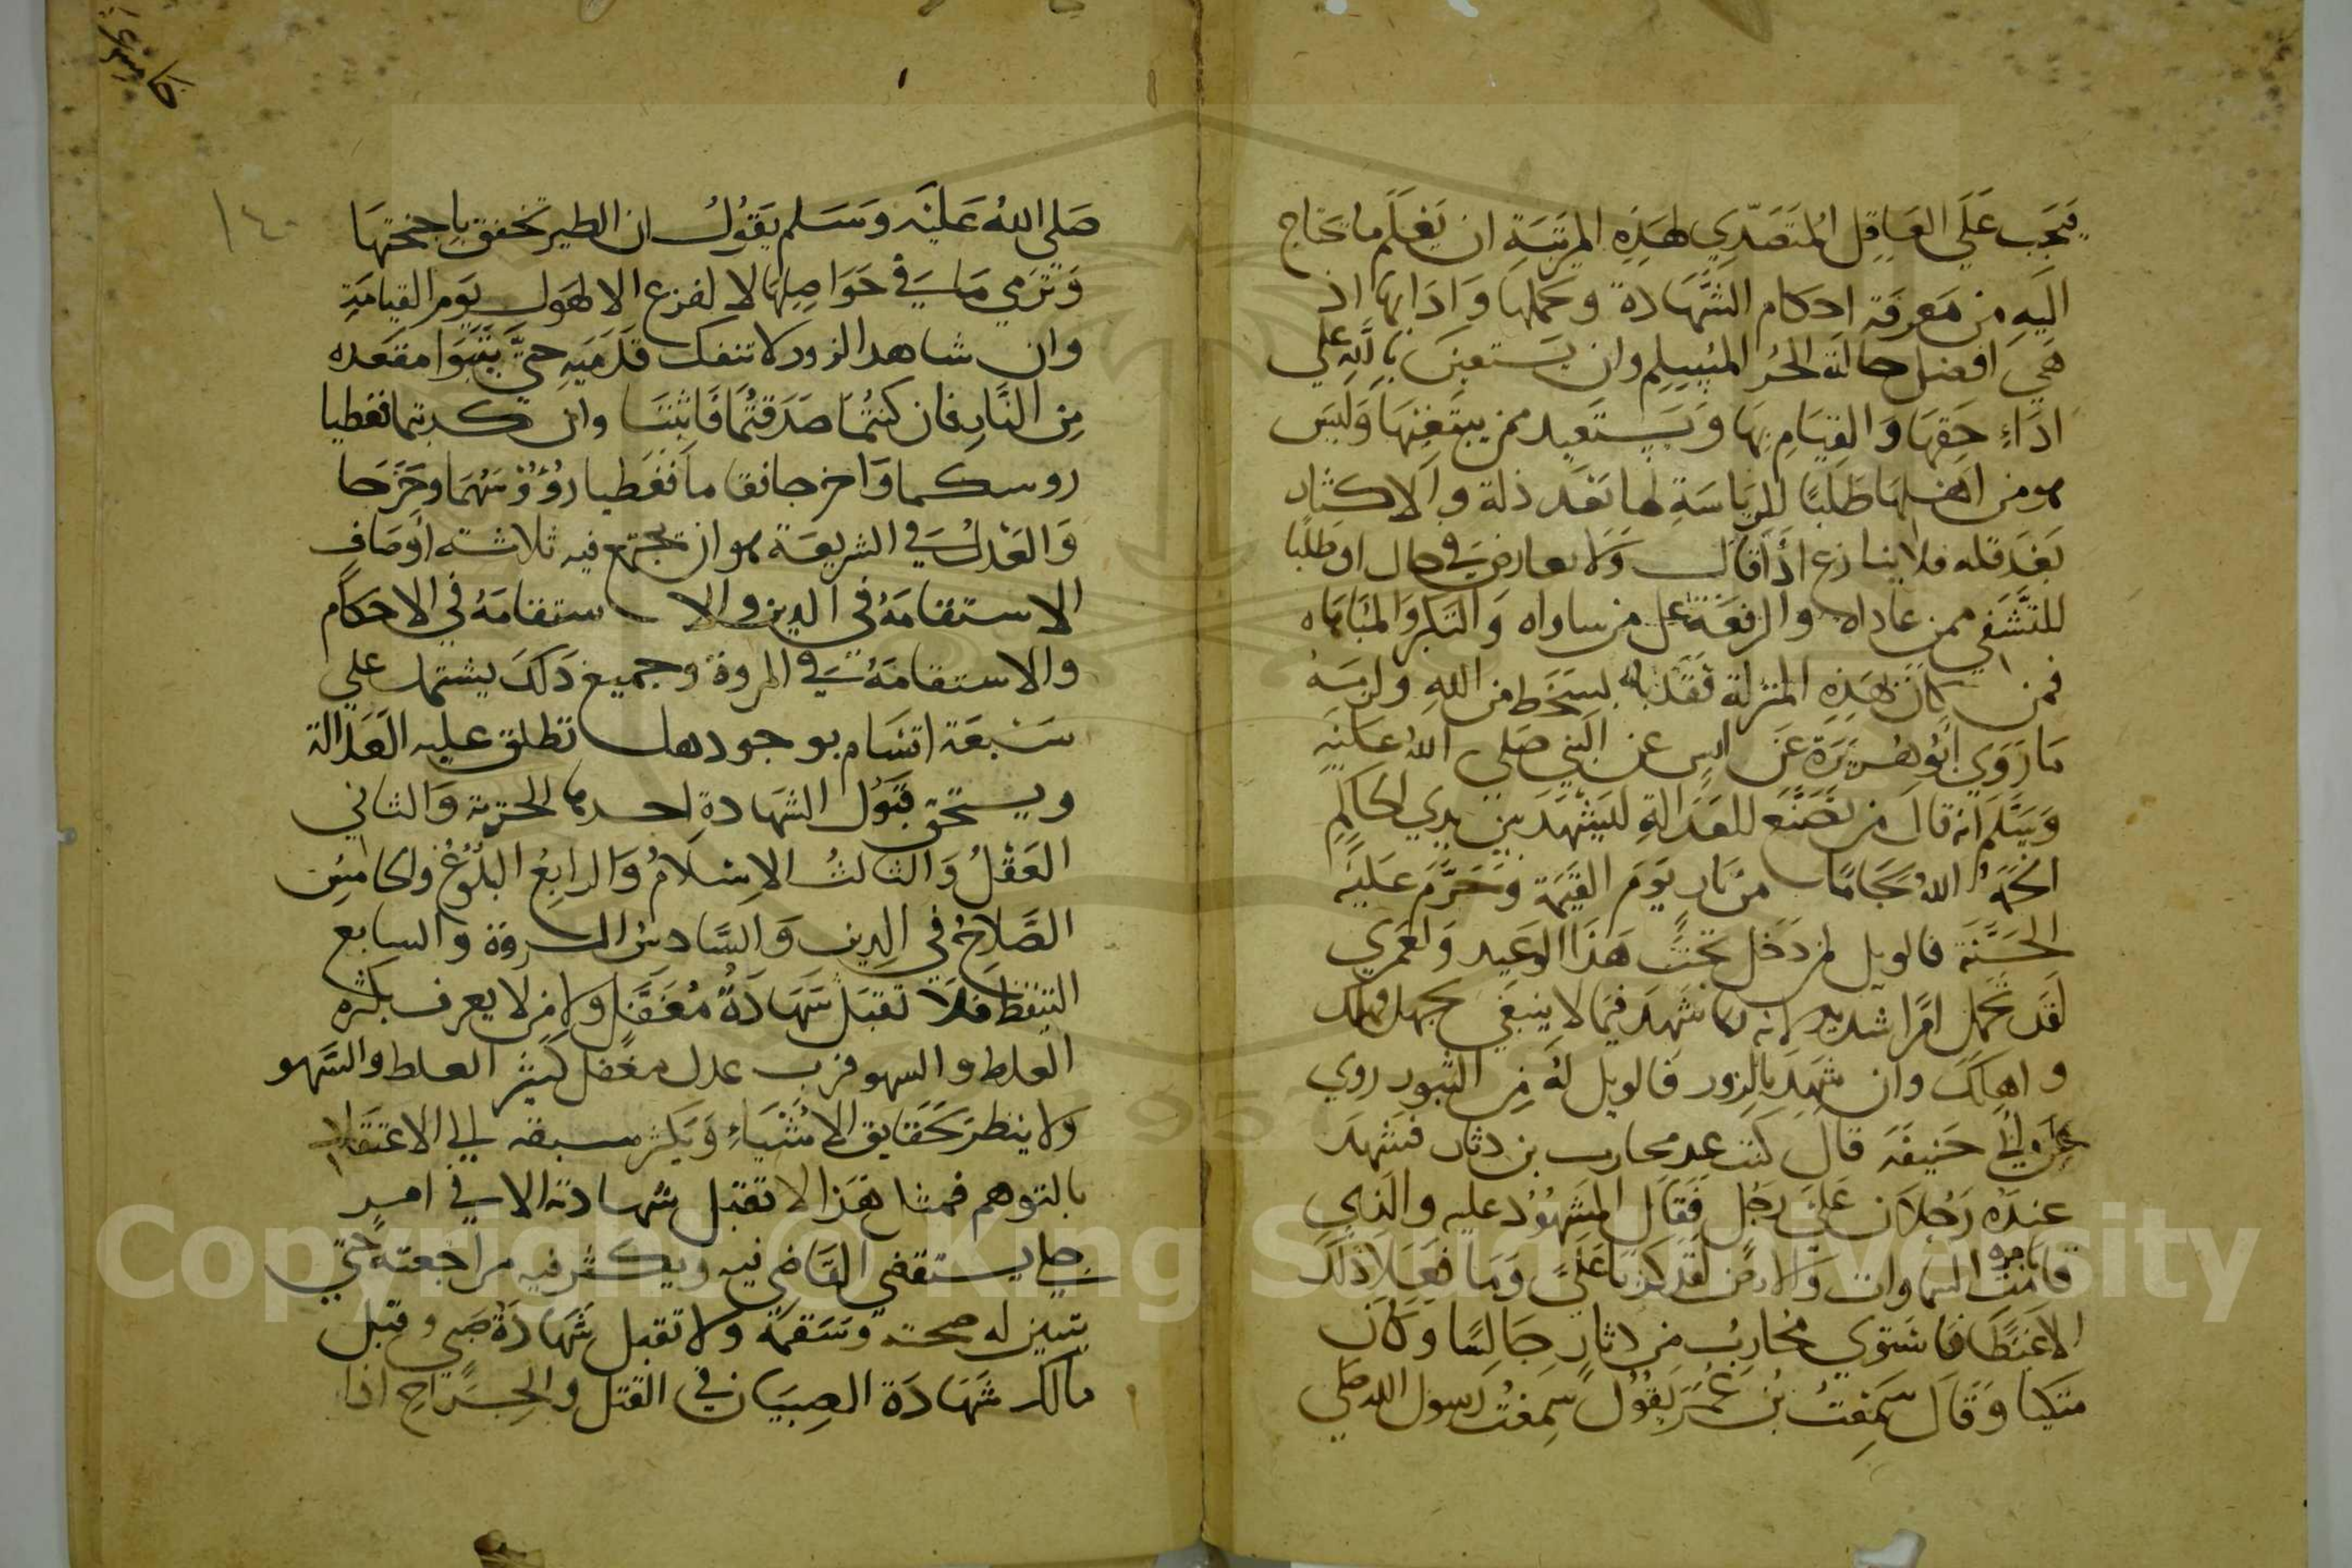 فيجب على العاقل المتصدي لهذه المرتبة ان يعلم ما يحتاج
اليه من معرفة احكام الشهادة وتحملها وادابها اذ
هي افضل حالة الحر المسلم وان يستعين بالله على
اداء حقها والقيام بها ويستعيد ممن يبتغيها وليس
هو من اهلها طلبا للرياسة لما تعد ذلة والاكثار
بعد قله فلا ينازع اذا قال ولا يعارض في حال او طلبا
للتشفي ممن عاداه والرفعة على من ساواه والتكبر والمباهاه
فمن كان بهذه المنزلة فقد باء بسخط من الله ولزمه
ما روي ابو هريرة عن انس عن النبي صلى الله عليه
وسلم انه قال من تصنع للعدالة ليشهد بين يدي الحاكم
الجمه الله لجاما من نار يوم القيمة وحرم عليه
الجنة فالويل لمن دخل تحت هذا الوعيد ولعمري
لقد تحمل امرا شديدا لانه شهد فيما لا ينبغي بجهل هلك
واهلك وان شهد بالزور فالويل له من الثبور روي
عن ابي حنيفة قال كنت عند محارب بن دثار فشهد
عنده رجلان على رجل فقال المشهود عليه والذي
قامت بامره السماوات والارض لقد كذبا علي وما فعلا ذلك
الا غيظا فاستوي محارب بن دثار جالسا وكان
متكيا وقال سمعت بن عمر يقول سمعت رسول الله صلى
١٤٠
صلى الله عليه وسلم يقول ان الطير تخفق باجنحتها
وترمي ما في حواصلها لا لفزع الا لهول يوم القيامة
وان شاهد الزور لا تنفك قدميه حتى يتبوا مقعده
من النار فان كنتما صدقتما فاثبتا وان كدبتما فغطيا
روسكما واخرجا فقاما فغطيا رؤوسهما وخرجا
والعدل في الشريعة هو ان تجتمع فيه ثلاثة اوصاف
الاستقامة في الدين والاستقامة في الاحكام
والاستقامة في المروة وجميع ذلك يشتمل علي
سبعة اقسام بوجودها تطلق عليه العدالة
ويستحق قبول الشهادة احدها الحرية والثاني
العقل والثالث الاسلام والرابع البلوغ والخامس
الصلاح في الدين والسادس المروة والسابع
التيقظ فلا تقبل شهادة مغفل ولا من لا يعرف بكثره
الغلط والسهو فرب عدل مغفل كثير الغلط والسهو
ولا ينظر بحقايق الاشياء ويكثر سبقه الي الاعتقاد
بالتوهم فمثل هذا لا تقبل شهادته الا في امر
جلي يستقضي القاضي فيه ويكثر فيه مراجعته حتى
يتبين له صحته وسقمه ولا تقبل شهادة صبي وقبل
مالك شهادة الصبيان في القتل والجراح اذا
Copyright © King Saud University
1957